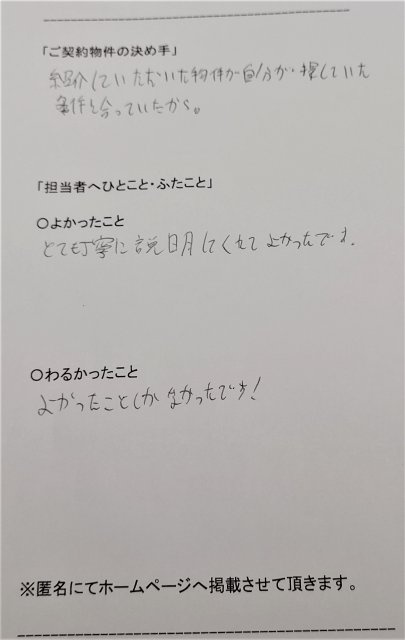 「ご契約物件の決め手」
紹介していただいた物件が自分が探していた
条件と合っていたから。
「担当者へひとこと・ふたこと」
○よかったこと
とても丁寧に説明してくれてよかったです.
○わるかったこと
よかったことしかなかったです!
※匿名にてホームページへ掲載させて頂きます。